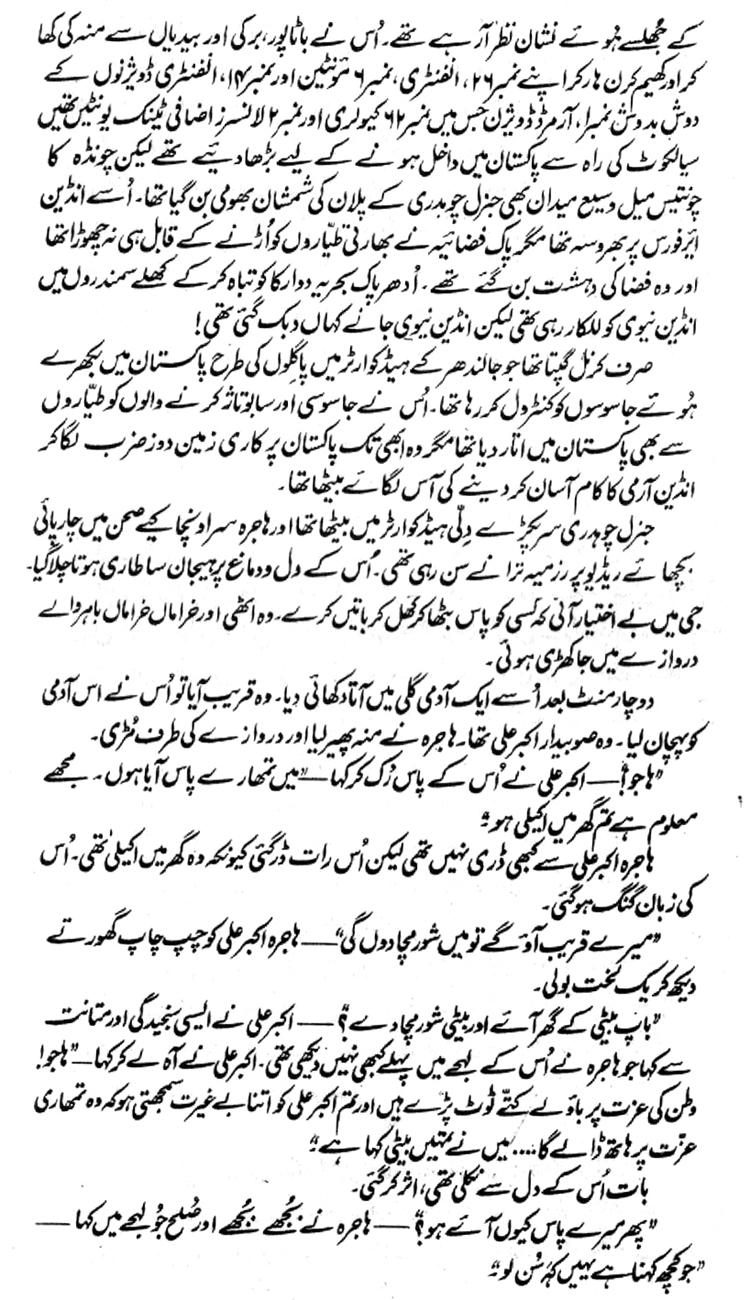 کے جھلسے ہوئے نشان نظر آ رہے تھے۔ اُس نے باٹا پور، برکی اور بیدیاں سے منہ کی کھا
کر اور کھیم کرن ہار کر اپنے نمبر ۲۶، انفنٹری، نمبر ۶ مونٹین اور نمبر ۱۴، انفنٹری ڈویژنوں کے
دوش بدوش نمبر ۱، آرمرڈ ڈویژن جس میں نمبر ۶۲ کیولری اور نمبر ۲ لانسرز اضافی ٹینک یونٹیں تھیں
سیالکوٹ کی راہ سے پاکستان میں داخل ہونے کے لیے بڑھا دیئے تھے لیکن چونڈہ کا
چونتیس میل وسیع میدان بھی جنرل چوہدری کے پلان کی شمشان بھومی بن گیا تھا۔ اُسے انڈین
ایئر فورس پر بھروسہ تھا مگر پاک فضائیہ نے بھارتی طیاروں کو اُڑنے کے قابل ہی نہ چھوڑا تھا
اور وہ فضا کی دہشت بن گئے تھے۔ اُدھر پاک بحریہ دوارکا کو تباہ کر کے کھلے سمندروں میں
انڈین نیوی کو للکار رہی تھی لیکن انڈین نیوی جانے کہاں دبک گئی تھی!
صرف کرنل گپتا تھا جو جالندھر کے ہیڈ کوارٹر میں پاگلوں کی طرح پاکستان میں بکھرے
ہوئے جاسوسوں کو کنٹرول کر رہا تھا۔ اُس نے جاسوسی اور سبوتاژ کرنے والوں کو طیاروں
سے بھی پاکستان میں اتار دیا تھا مگر وہ ابھی تک پاکستان پر کاری زمین دوز ضرب لگا کر
انڈین آرمی کا کام آسان کر دینے کی آس لگائے بیٹھا تھا۔
جنرل چوہدری سر پکڑے دِلّی ہیڈ کوارٹر میں بیٹھا تھا اور ہاجرہ سر اونچا کیے صحن میں چارپائی
بچھائے ریڈیو پر رزمیہ ترانے سن رہی تھی۔ اُس کے دل و دماغ پر ہیجان سا طاری ہوتا چلا گیا۔
جی میں بے اختیار آئی کہ کسی کو پاس بٹھا کر کھُل کر باتیں کرے۔ وہ اٹھی اور خراماں خراماں باہر والے
دروازے میں جا کھڑی ہوئی۔
دو چار منٹ بعد اُسے ایک آدمی گلی میں آتا دکھائی دیا۔ وہ قریب آیا تو اُس نے اس آدمی
کو پہچان لیا۔ وہ صوبیدار اکبر علی تھا۔ ہاجرہ نے منہ پھیر لیا اور دروازے کی طرف مُڑی۔
”ہاجو!“ — اکبر علی نے اُس کے پاس رُک کر کہا — ”میں تمھارے پاس آیا ہوں۔ مجھے
معلوم ہے تم گھر میں اکیلی ہو“
ہاجرہ اکبر علی سے کبھی ڈری نہیں تھی لیکن اُس رات ڈر گئی کیونکہ وہ گھر میں اکیلی تھی۔ اُس
کی زبان گنگ ہو گئی۔
”میرے قریب آؤ گے تو میں شور مچا دوں گی“ — ہاجرہ اکبر علی کو چپ چاپ گھورتے
دیکھ کر یک لخت بولی۔
”باپ بیٹی کے گھر آئے اور بیٹی شور مچا دے؟“ — اکبر علی نے ایسی سنجیدگی اور متانت
سے کہا جو ہاجرہ نے اُس کے لہجے میں پہلے کبھی نہیں دیکھی تھی۔ اکبر علی نے آہ لے کر کہا — ”ہاجو!
وطن کی عزت پر باؤلے کتّے ٹوٹ پڑے ہیں اور تم اکبر علی کو اتنا بے غیرت سمجھتی ہو کہ وہ تمھاری
عزّت پر ہاتھ ڈالے گا .... میں نے تمہیں بیٹی کہا ہے“
بات اُس کے دل سے نکلی تھی، اثر کر گئی۔
”پھر میرے پاس کیوں آئے ہو؟“ — ہاجرہ نے بُجھے بُجھے اور صُلح جُو لہجے میں کہا —
”جو کچھ کہنا ہے یہیں کہہ سُن لو“